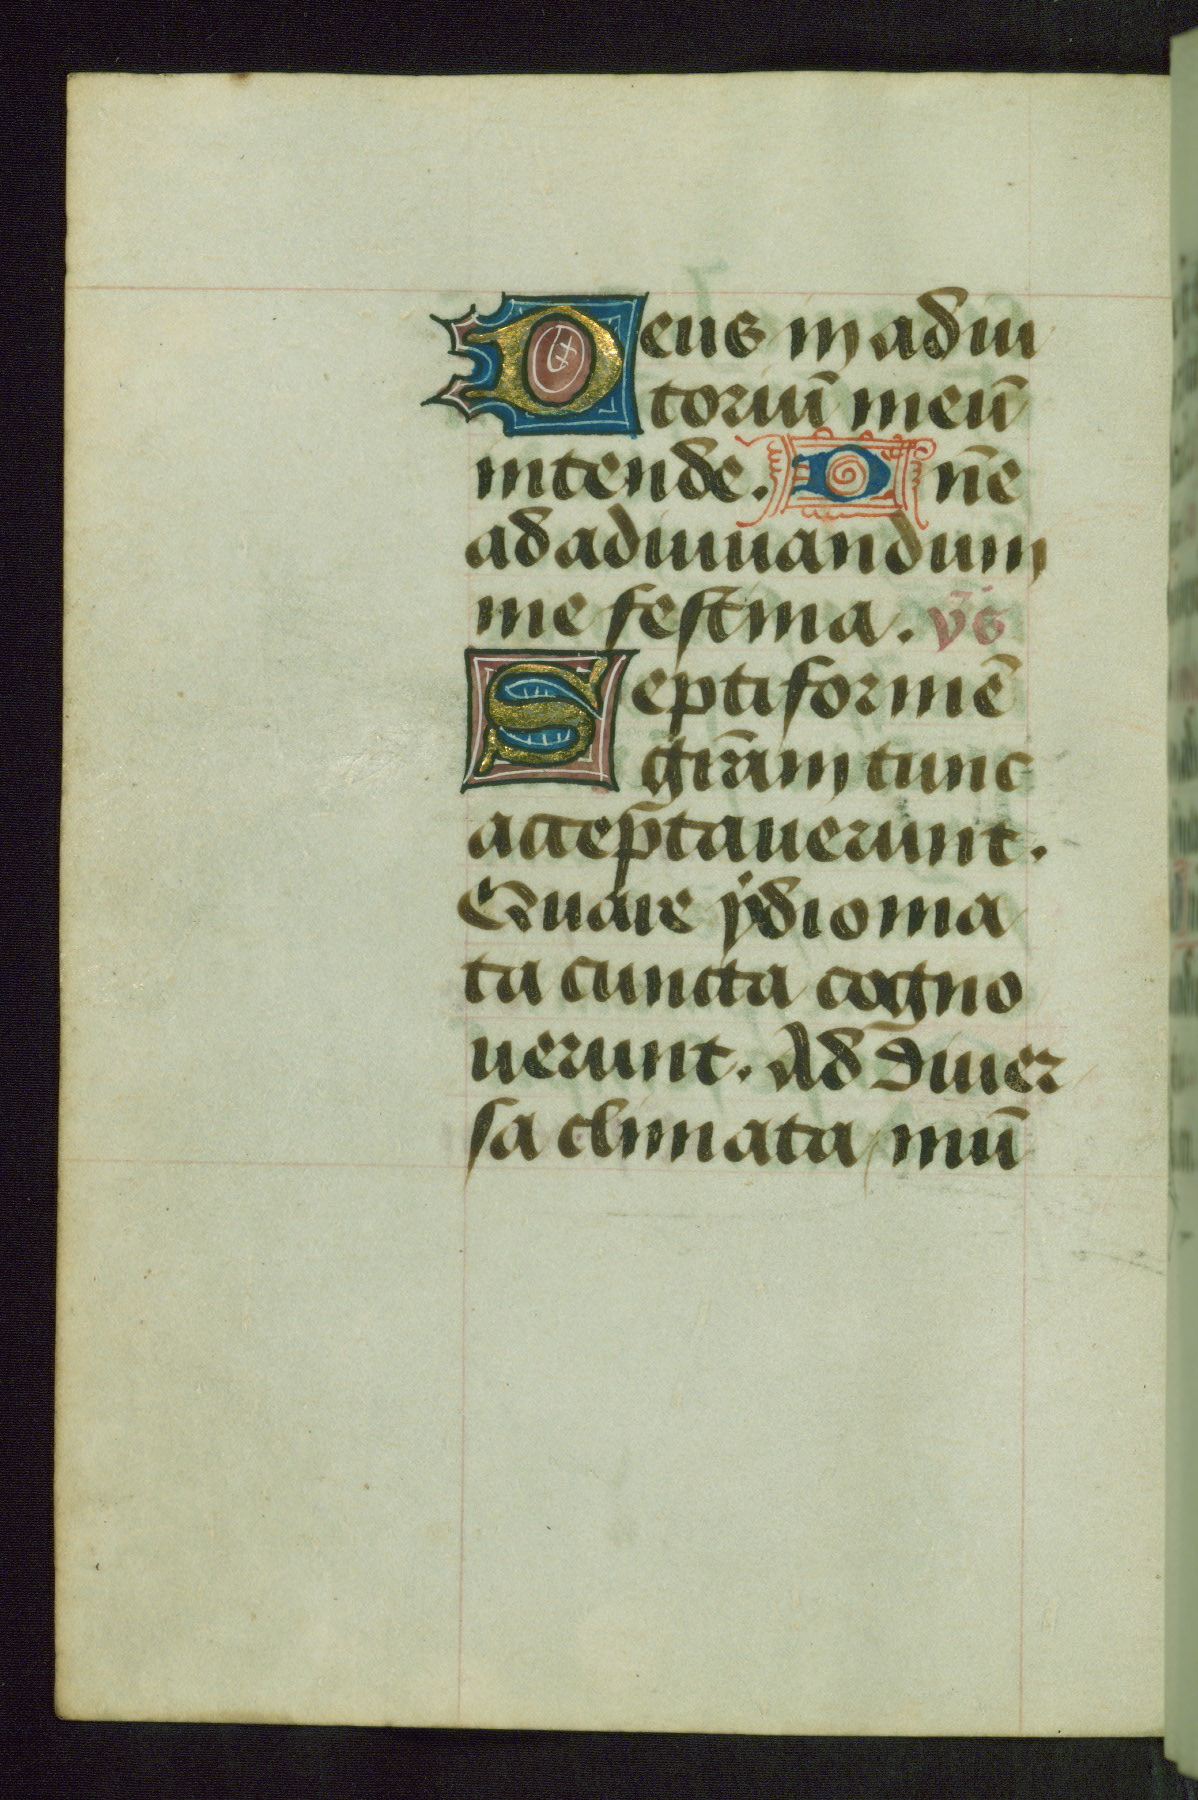 Deus in adiu
toriū meū
intende. Dn̄e
ad adiuuandum
me festina. v̄s
Septiformē
grām tunc
accep̄tauerunt.
Quare ydioma
ta cuncta cogno
uerunt. Ad diuer
sa climata mū